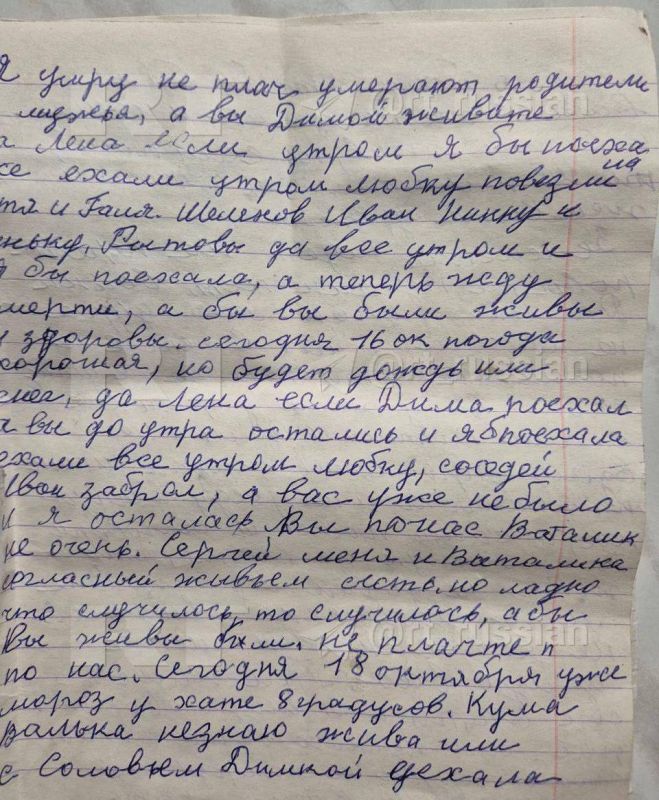 я умру не плач умерают родители
а вы Димой живите
а Лена если утром я бы поеха
ла
се ехали утром любку повезли
тя и Галя. Шеленов Иван Нинку и
еньку, Рытовы да все утром и
я бы поехала, а теперь жду
мерти, а бы вы были живы
и здоровы. сегодня 16 ок погода
хорошая, но будет дождь или
снег, да Лена если Дима поехал
а вы до утра остались и я б поехала
ехали все утром любку, соседей
Иван забрал, а вас уже не было
и я осталась Вы по нас Ваталик
не очень. Сергей меня и Ваталика
огласный живьем съесть, но ладно
что случилось, то случилось, а бы
Вы живы были, не плачте п
по нас. Сегодня 18 октября уже
мороз у хате 8 градусов. Кума
Валька незнаю жива или
с Соловьем Димкой уехала
@rt_russian
@rt_russian
@rt_russian